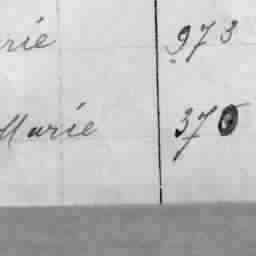 rie 973
Marie 370